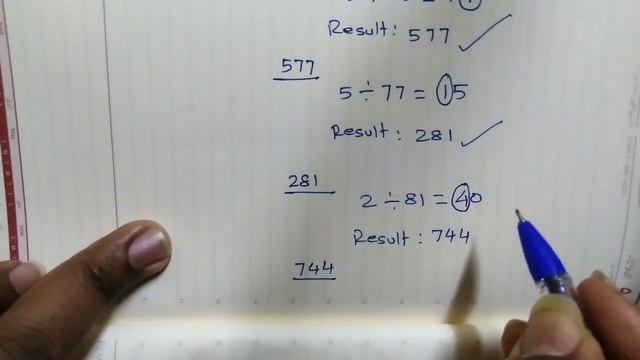 Result: 577
577
5 ÷ 77 = 15
Result: 281
281
2 ÷ 81 = 40
Result: 744
744